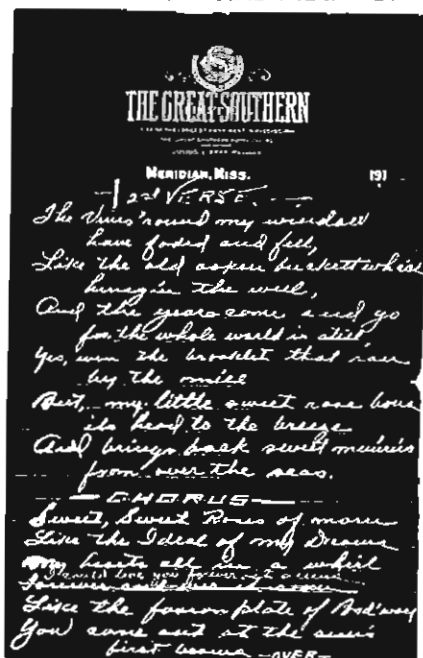 THE GREAT SOUTHERN
MERIDIAN, MISS. 191
2nd VERSE.
The Vines 'round my window
have faded and fell,
Like the old oaken buckett which
hung in the well,
And the years come and go
for the whole world is still
Yes, even the brooklet that ran
by the mill
But, my little sweet rose bows
its head to the breeze
And brings back sweet
from over the seas.
CHORUS
Sweet, Sweet Roses of morn
Like the Ideal of my Dreams
My hearts all in a whirl
Like the fashion plate of Brd'way
You come out at the sun's
first beams -OVER-